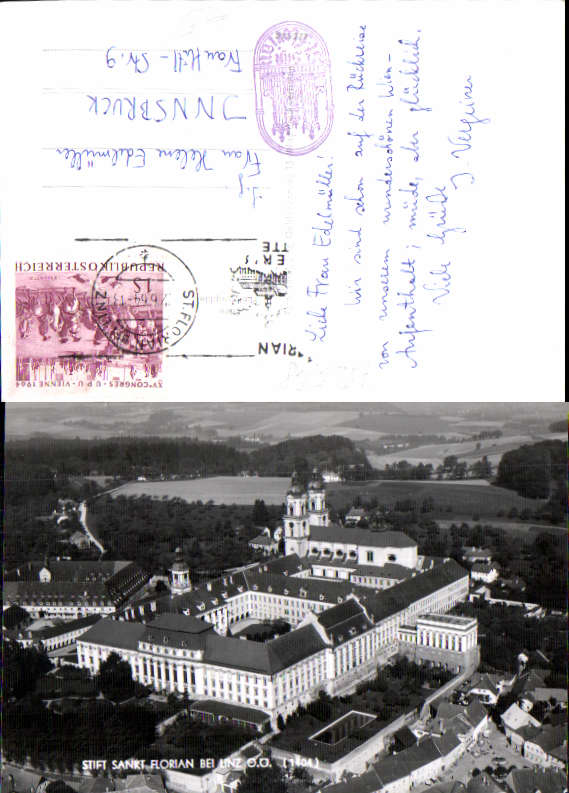 Liebe Frau Edelmüller!
Wir sind schon auf der Rückreise
von unserem wunderschönen Wien-
Aufenthalt; müde, aber glücklich.
Viele Grüße
REPUBLIK ÖSTERREICH
XV.CONGRES-U P U-VIENNE 1964
ST.FLORIAN BEI LINZ
Frau Helene Edelmüller
INNSBRUCK
Frau Hitt-Str. 9
STIFT SANKT FLORIAN BEI LINZ O.Ö. (1404)